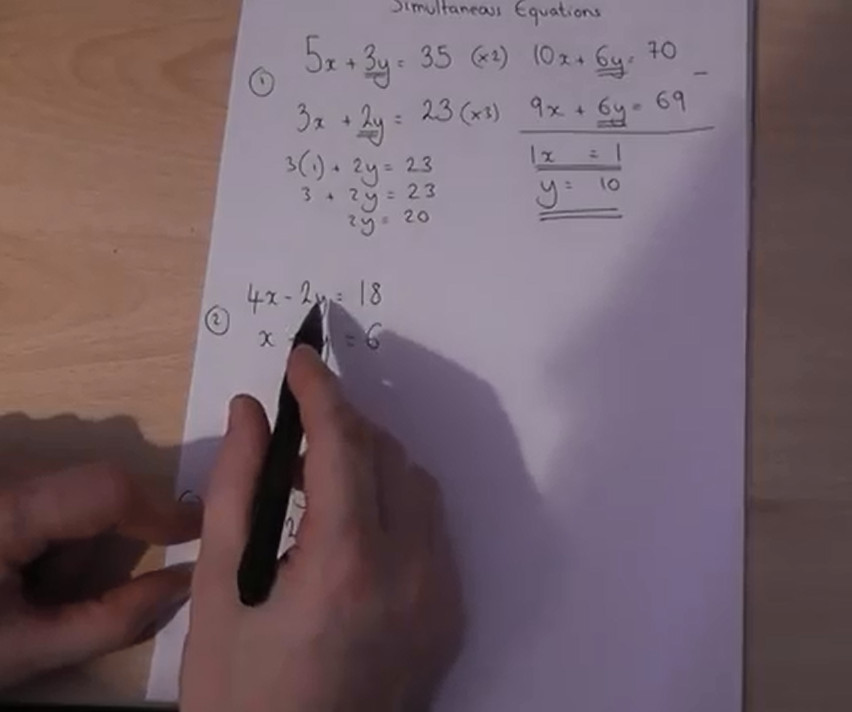 Simultaneous Equations
① 5x + 3y = 35 (x2) 10x + 6y = 70 -
3x + 2y = 23 (x3) 9x + 6y = 69
3(1) + 2y = 23 1x = 1
3 + 2y = 23 y = 10
2y = 20
② 4x - 2y = 18
x y = 6
2